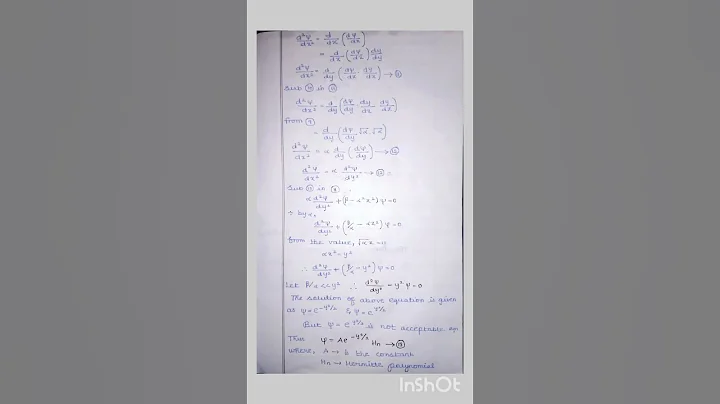 d²ψ/dx² = d/dx (dψ/dx)
= d/dx (dψ/dx) dy/dy
d²ψ/dx² = d/dy (dψ/dx · dy/dx) →
Sub in
d²ψ/dx² = d/dy (dψ/dy · dy/dx · dy/dx)
From
= d/dy (dψ/dy √α √α)
d²ψ/dx² = α d/dy (dψ/dy) →
d²ψ/dx² = α d²ψ/dy² →
Sub in
α d²ψ/dy² + (β - α²x²) ψ = 0
÷ by α,
d²ψ/dy² + (β/α - αx²) ψ = 0
from the value, √α x = y
αx² = y²
∴ d²ψ/dy² + (β/α - y²) ψ = 0
Let β/α << y² ∴ d²ψ/dy² - y² ψ = 0
The solution of above equation is given
as ψ = e^-y²/2 & ψ = e^y²/2
But ψ = e^y²/2 is not acceptable
Thus ψ = Ae^-y²/2 Hn →
where, A → the constant
Hn → Hermite polynomial
InShOt